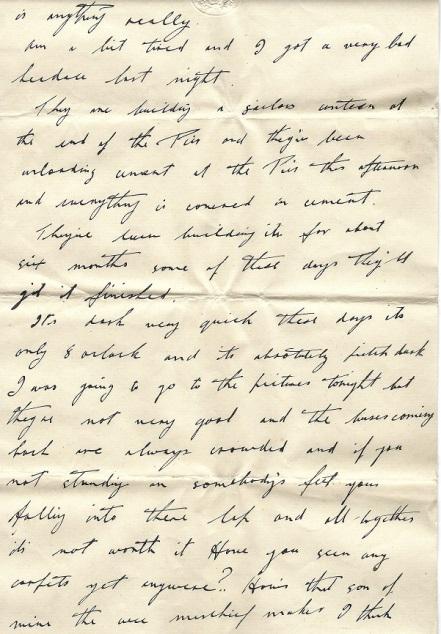 is anything really.
Am a bit tired and I got a very bad
headace last night.
They are building a sailors canteen at
the end of the Pier and they've been
unloading cement at the Pier this afternoon
and everything is covered in cement.
They've been building it for about
six months some of these days they'll
get it finished.
It's dark very quick these days its
only 8 oclock and its absolutely pitch dark
I was going to go to the pictures tonight but
theyre not very good and the buses coming
back are always crowded and if you
not standing on somebodys feet your
falling into there lap and all-together
its not worth it Have you seen any
carpets yet anywere? Hows that son of
mine the wee mischief maker I think